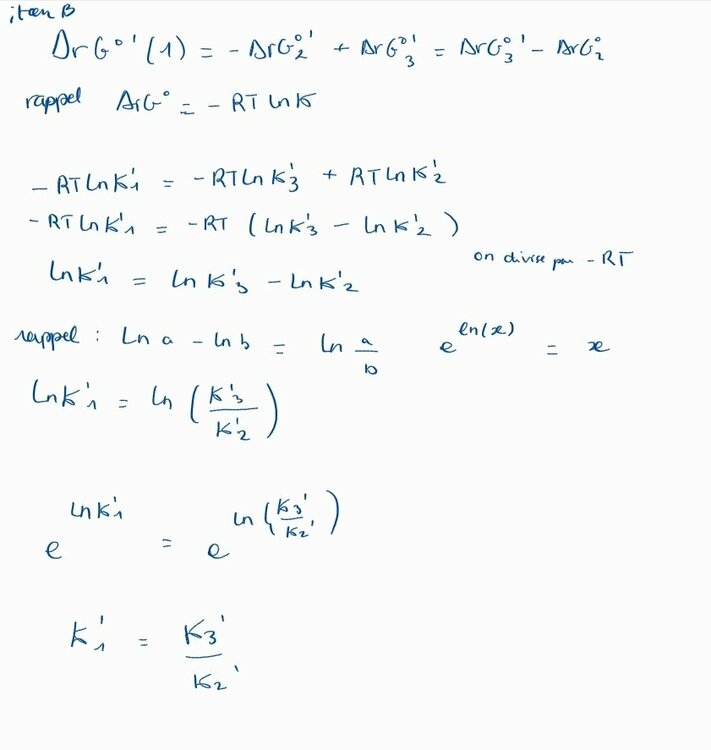 item B
ΔrG°'(1) = - ΔrG₂°' + ΔrG₃°' = ΔrG₃°' - ΔrG₂°
rappel ΔrG° = - RT ln K
- RT ln K'₁ = - RT ln K'₃ + RT ln K'₂
- RT ln K'₁ = - RT (ln K'₃ - ln K'₂)
on divise par - RT
ln K'₁ = ln K'₃ - ln K'₂
rappel : ln a - ln b = ln a/b e^ln(x) = x
ln K'₁ = ln (K'₃/K'₂)
e^ln K'₁ = e^ln (K₃'/K₂')
K'₁ = K₃'/K₂'